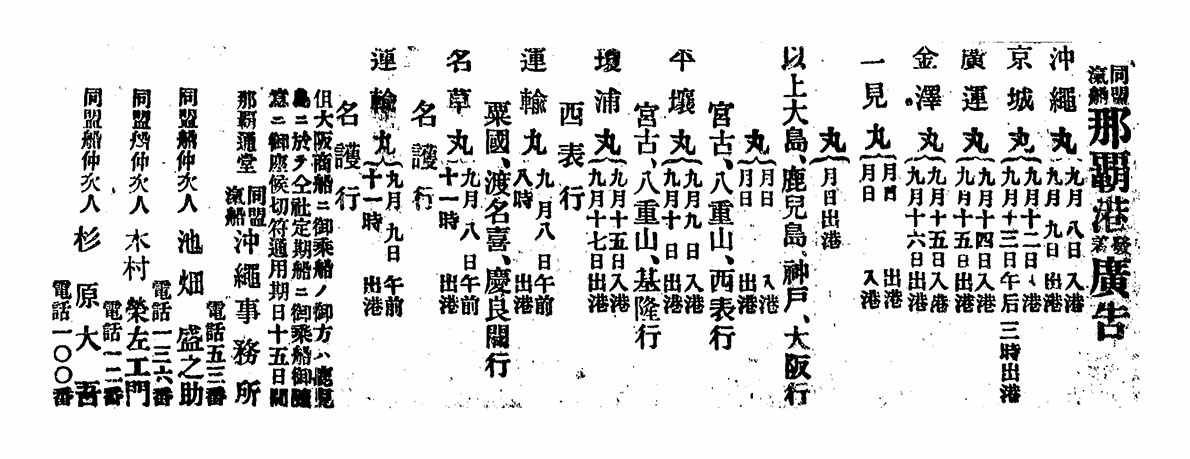 同盟汽船 那覇港発着廣告
沖繩丸 九月八日入港 九月九日出港
京城丸 九月十二日入港 九月十三日午后三時出港
廣運丸 九月十四日入港 九月十五日出港
金澤丸 九月十五日入港 九月十六日出港
一見丸 月日出港 月日入港
丸 月日出港
以上大島、鹿兒島、神戸、大阪行
丸 月日入港 月日出港
宮古、八重山、西表行
平壤丸 九月九日入港 九月十日出港
宮古、八重山、基隆行
瓊浦丸 九月十五日入港 九月十七日出港
西表行
運輸丸 九月八日午前八時出港
粟國、渡名喜、慶良間行
名草丸 九月八日午前十一時出港
名護行
運輸丸 九月九日午前十一時出港
名護行
但大阪商船ニ御乘船ノ御方ハ鹿兒
島ニ於テ仝社定期船ニ御乘船御隨
意ニ御座候切符通用期日十五日間
那覇通堂 同盟汽船 沖繩事務所
電話五三番
同盟船仲次人 池畑盛之助
電話一三六番
同盟船仲次人 木村榮左工門
電話一一二番
同盟船仲次人 杉原大吾
電話一〇〇番